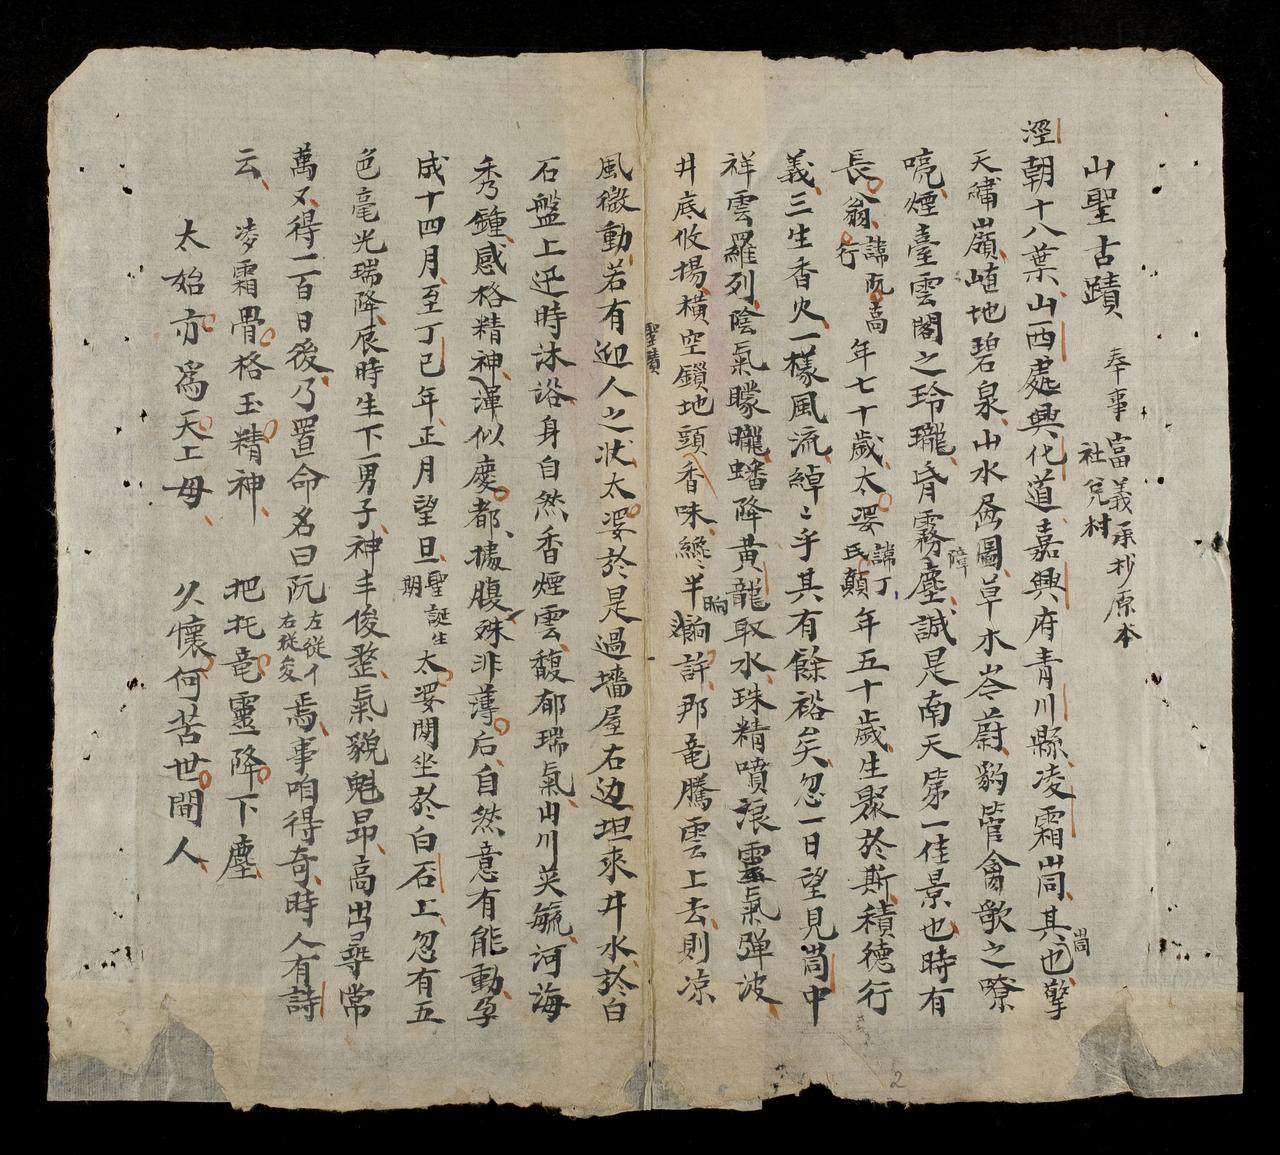 山聖古蹟 奉事富義承抄原本
社兌村
涇朝十八葉山西處興化道嘉興府青川縣凌霜峝其峝也擎
天繡嶺峙地碧泉山水畨圖草木岑蔚豹管禽歌之嘹
喨煙臺雲閣之玲瓏障肯霧塵誠是南天第一佳景也時有
長翁諱阮高行年七十歲太婆諱丁氏顛年五十歲生聚於斯積德行
義三生香火一樣風流綽〻乎其有餘裕矣忽一日望見峝中
祥雲羅列陰氣朦朧蟠降黃龍取水珠精噴浪靈氣彈波
井底攸揚橫空鎖地頭香味纔半晌許那竜騰雲上去則凉
聖蹟
風微動若有迎人之状太婆於是過墻屋右边坦來井水於白
石盤上迅時沐浴身自然香煙雲馥郁瑞氣山川英毓河海
秀鐘感格精神渾似慶都據腹殊非薄后自然意有能動孕
成十四月至丁巳年正月望旦聖誕生期太婆閒坐於白石上忽有五
色毫光瑞降辰時生下一男子神丰俊整氣貌魁昂高出尋常
萬又得一百日後乃置命名曰阮左從亻右從夋焉事咱得奇時人有詩
云 凌霜骨格玉精神 把托竜靈降下塵
太始亦為天上母 久懷何苦世間人